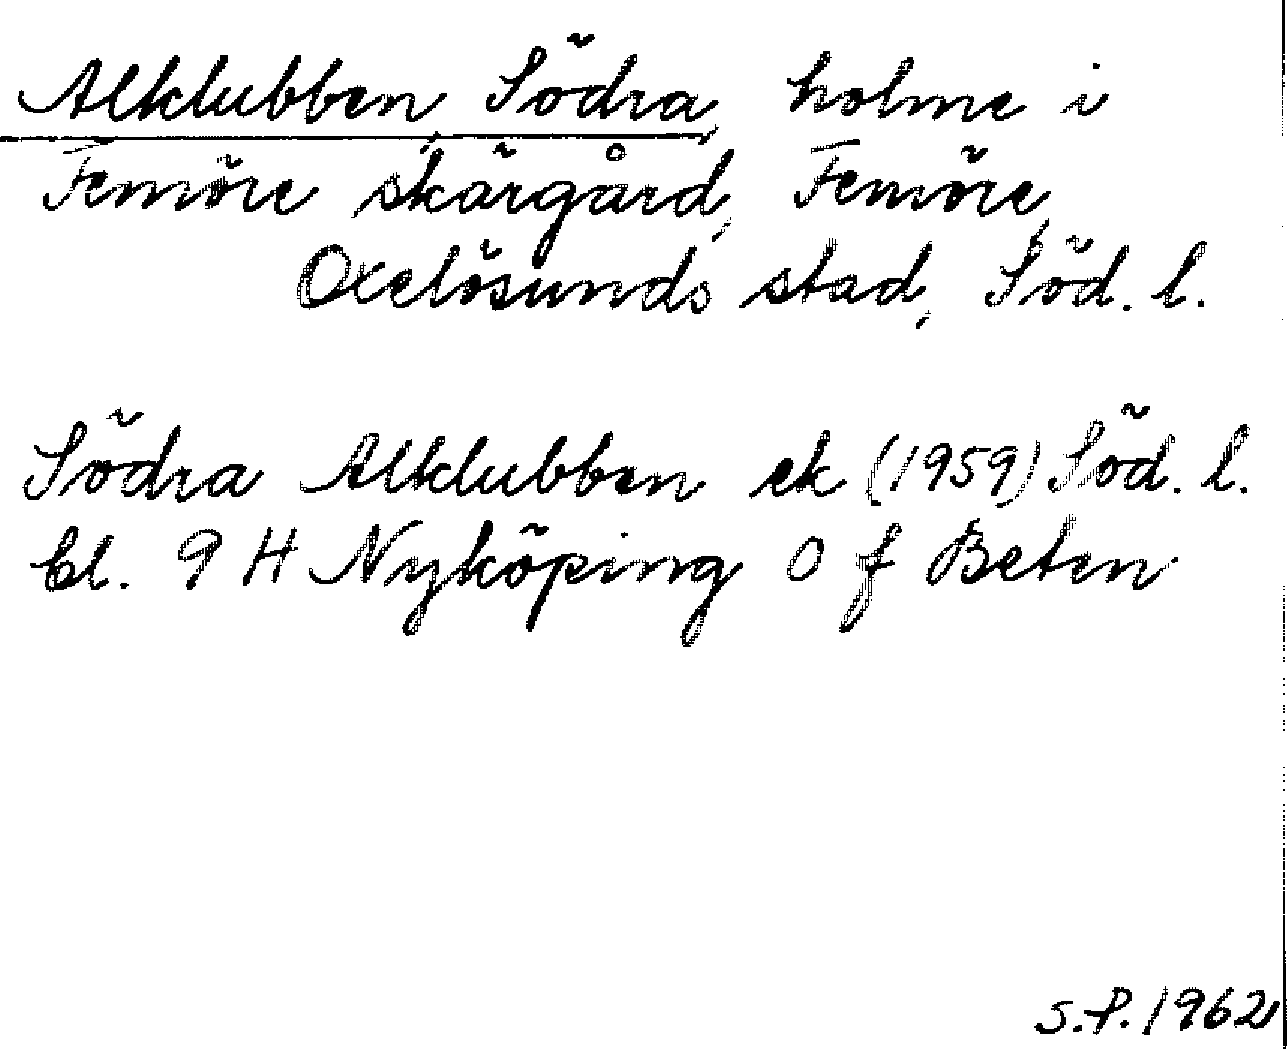 Alklubben, Södra, holme i
Femöre skärgård, Femöre,
Oxelösunds stad, Söd. l.
Södra Alklubben ek (1959) Söd. l.
bl. 9 H Nyköping O f Beten
S.P. 1962